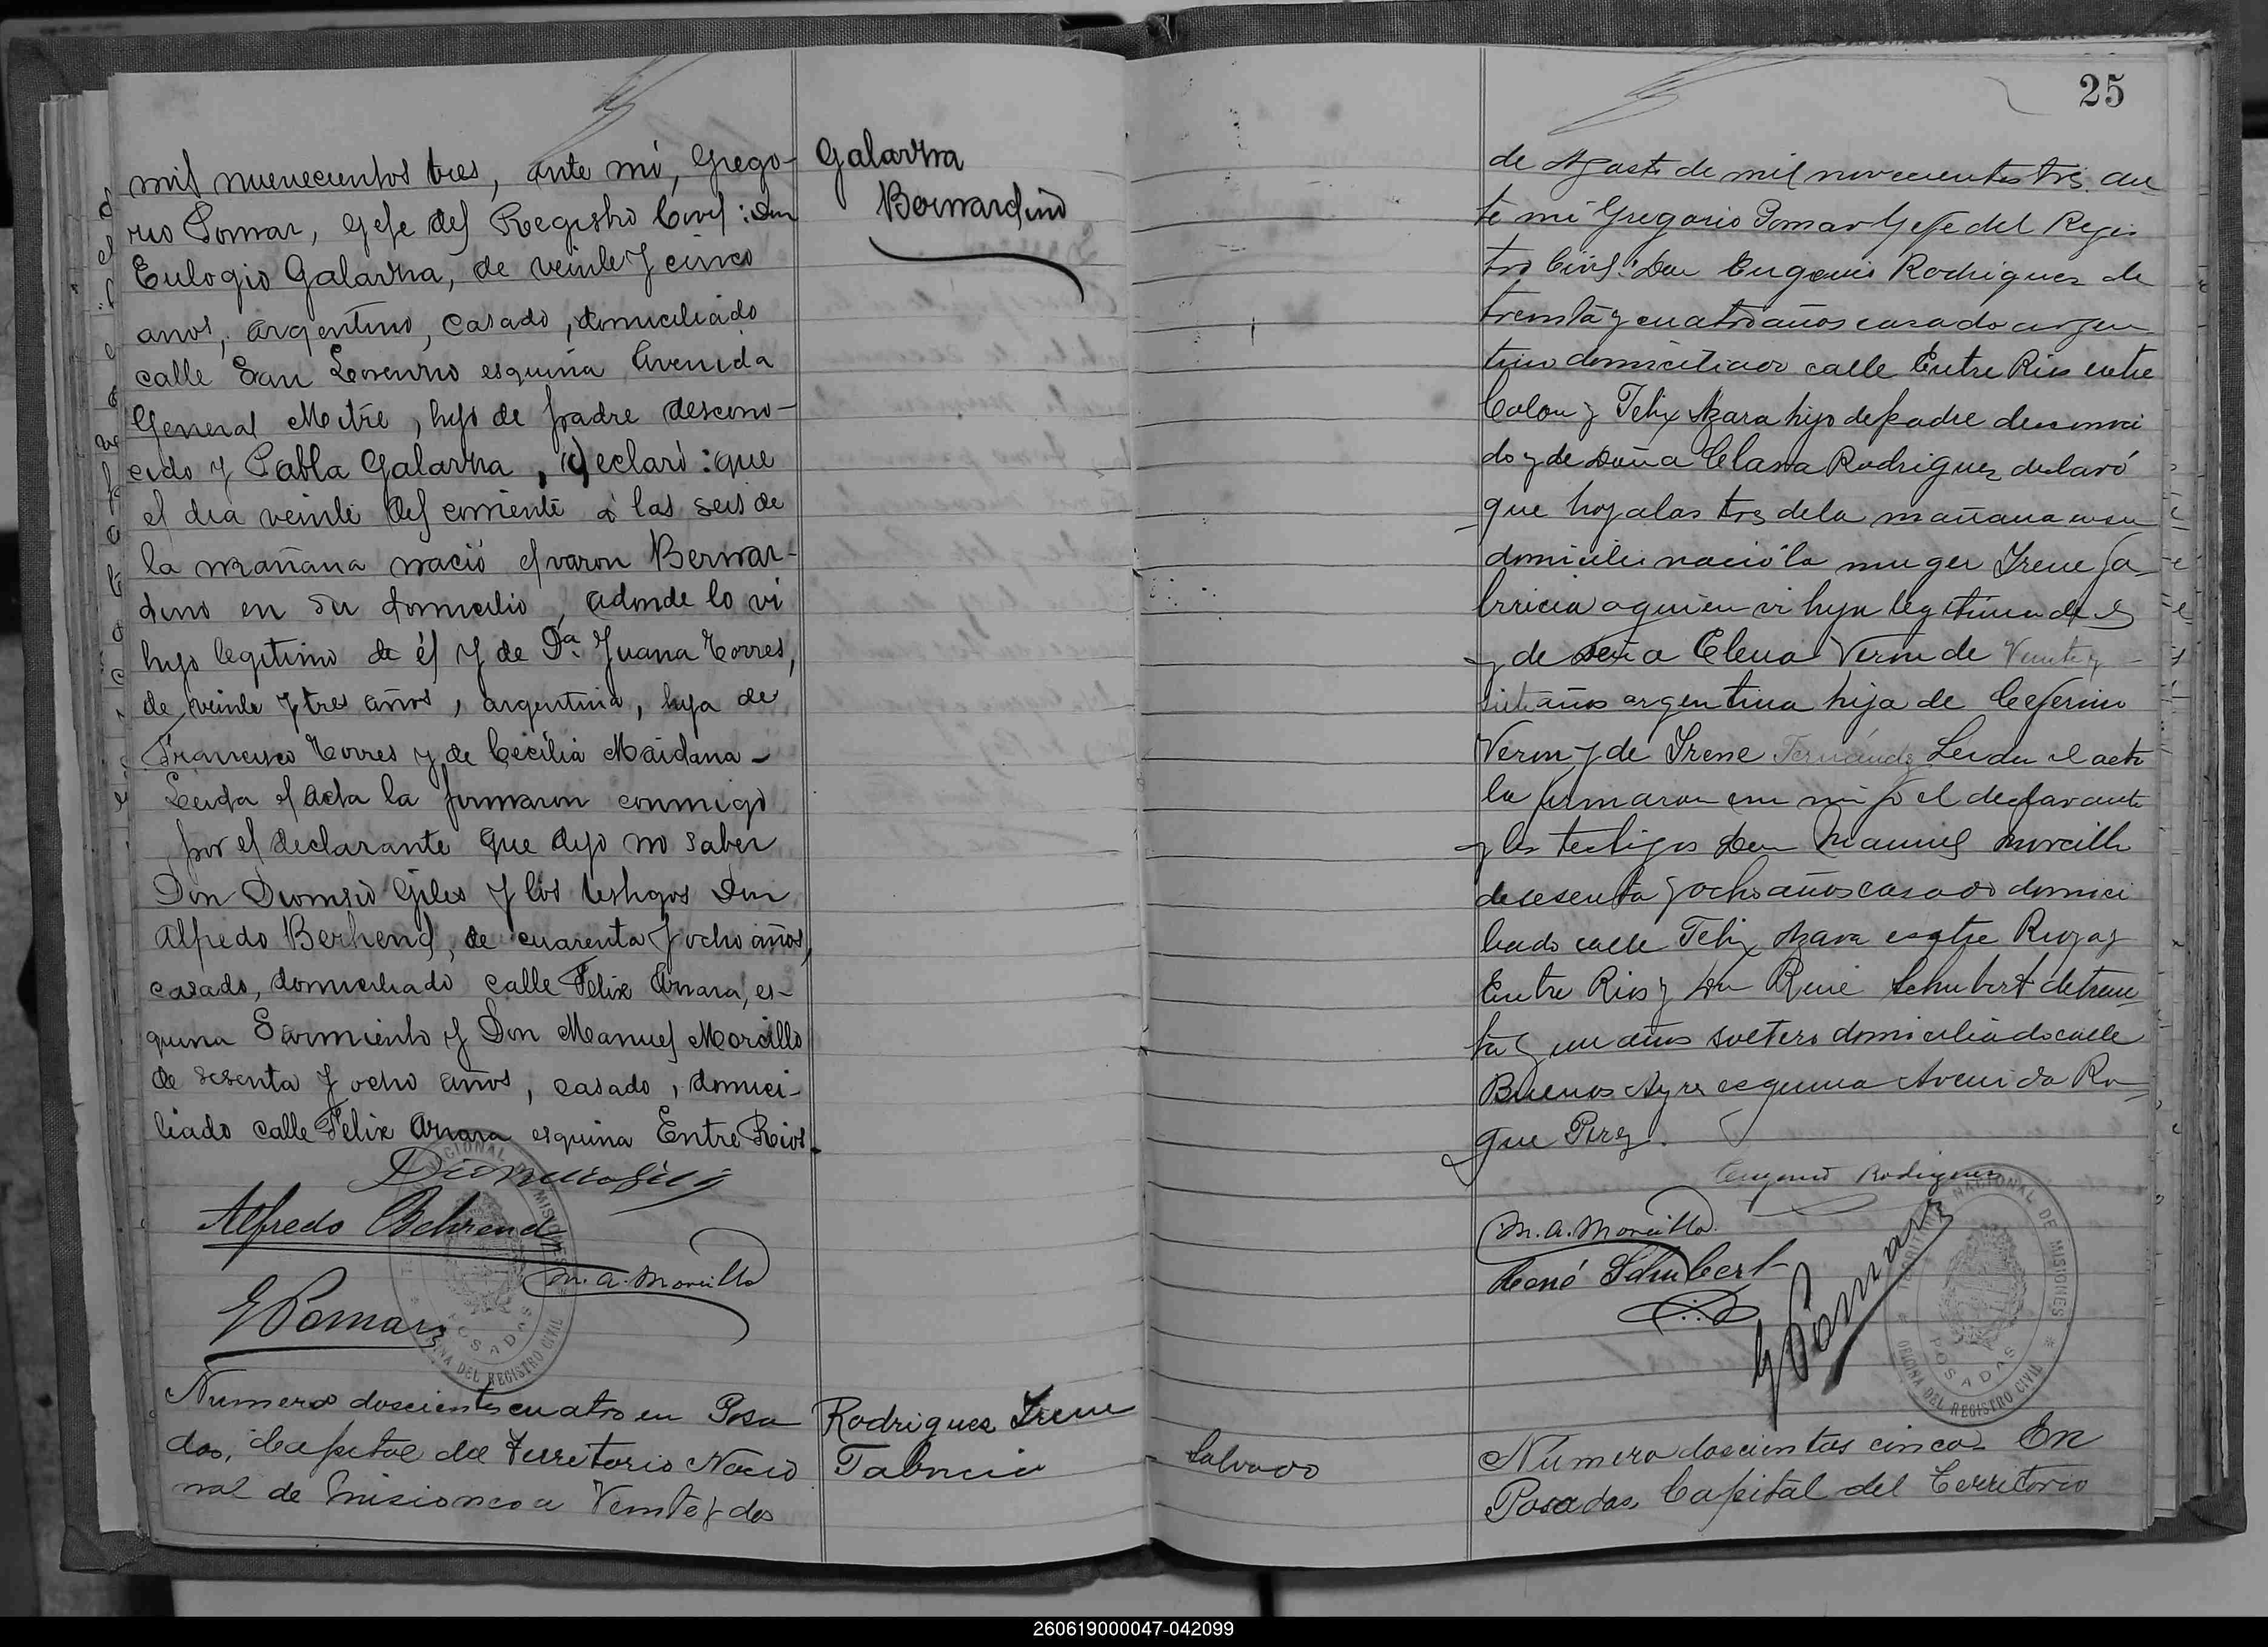 mil nuevecientos tres, ante mi, Grego-
rio Pomar, Gefe del Registro Civil: Don
Eulogio Galarza, de veinte y cinco
años, argentino, casado, domiciliado
calle San Lorenzo esquina Avenida
General Mitre, hijo de padre descono-
cido y Pabla Galarza, declaró: que
el dia veinte del corriente á las seis de
la mañana nació el varon Bernar-
dino en su domicilio, adonde lo vi
hijo legitimo de él y de Da. Juana Torres,
de veinte y tres años, argentina, hija de
Francisco Torres y de Cecilia Maidana-
Leida el acta la firmaron conmigo
por el declarante que dijo no saber
Don Dionisio Giles y los testigos Don
Alfredo Berhend, de cuarenta y ocho años,
casado, domiciliado calle Felix Azara, es-
quina Sarmiento y Don Manuel Morcillo
de sesenta y ocho años, casado, domici-
liado calle Felix Azara esquina Entre Rios.
Alfredo Behrend
M. A. Morcillo
G Pomar
Galarza
Bernardino
Numero doscientos cuatro en Posa
das, Capital del Territorio Nacio
nal de Misiones a Veinte y dos
Rodriguez Irene
Fabricia
25
de Agosto de mil novecientos tres an
te mi Gregorio Pomar Gefe del Regis
tro Civil: Don Eugenio Rodriguez de
treinta y cuatro años casado argen
tino domiciliado calle Entre Rios entre
Colon y Felix Azara hijo de padre desconoci
do y de Doña Clara Rodriguez declaró
que hoy a las tres de la mañana en su
domicilio nació la muger Irene Fa
bricia a quien vi hija legitima de el
y de doña Elena Veron de Veinte y
siete años argentina hija de Ceferino
Veron y de Irene Fernández Leida el acta
la firmaron con migo el declarante
y los testigos Don Manuel Morcillo
de sesenta y ocho años casado domici
liado calle Felix Azara entre Rioja y
Entre Rios y Don René Schubert de trein
ta y un años soltero domiciliado calle
Buenos Ayres esquina Avenida Ro
que Perez.
Eugenio Rodriguez
M. A. Morcillo
René Schubert
G Pomar
TERRITORIO NACIONAL DE MISIONES
OFICINA DEL REGISTRO CIVIL
POSADAS
Salvado
Número doscientos cinco En
Posadas, Capital del Territorio
260619000047-042099